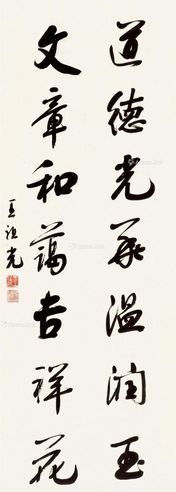 道德光华温润玉
文章和蔼吉祥花
王祖光